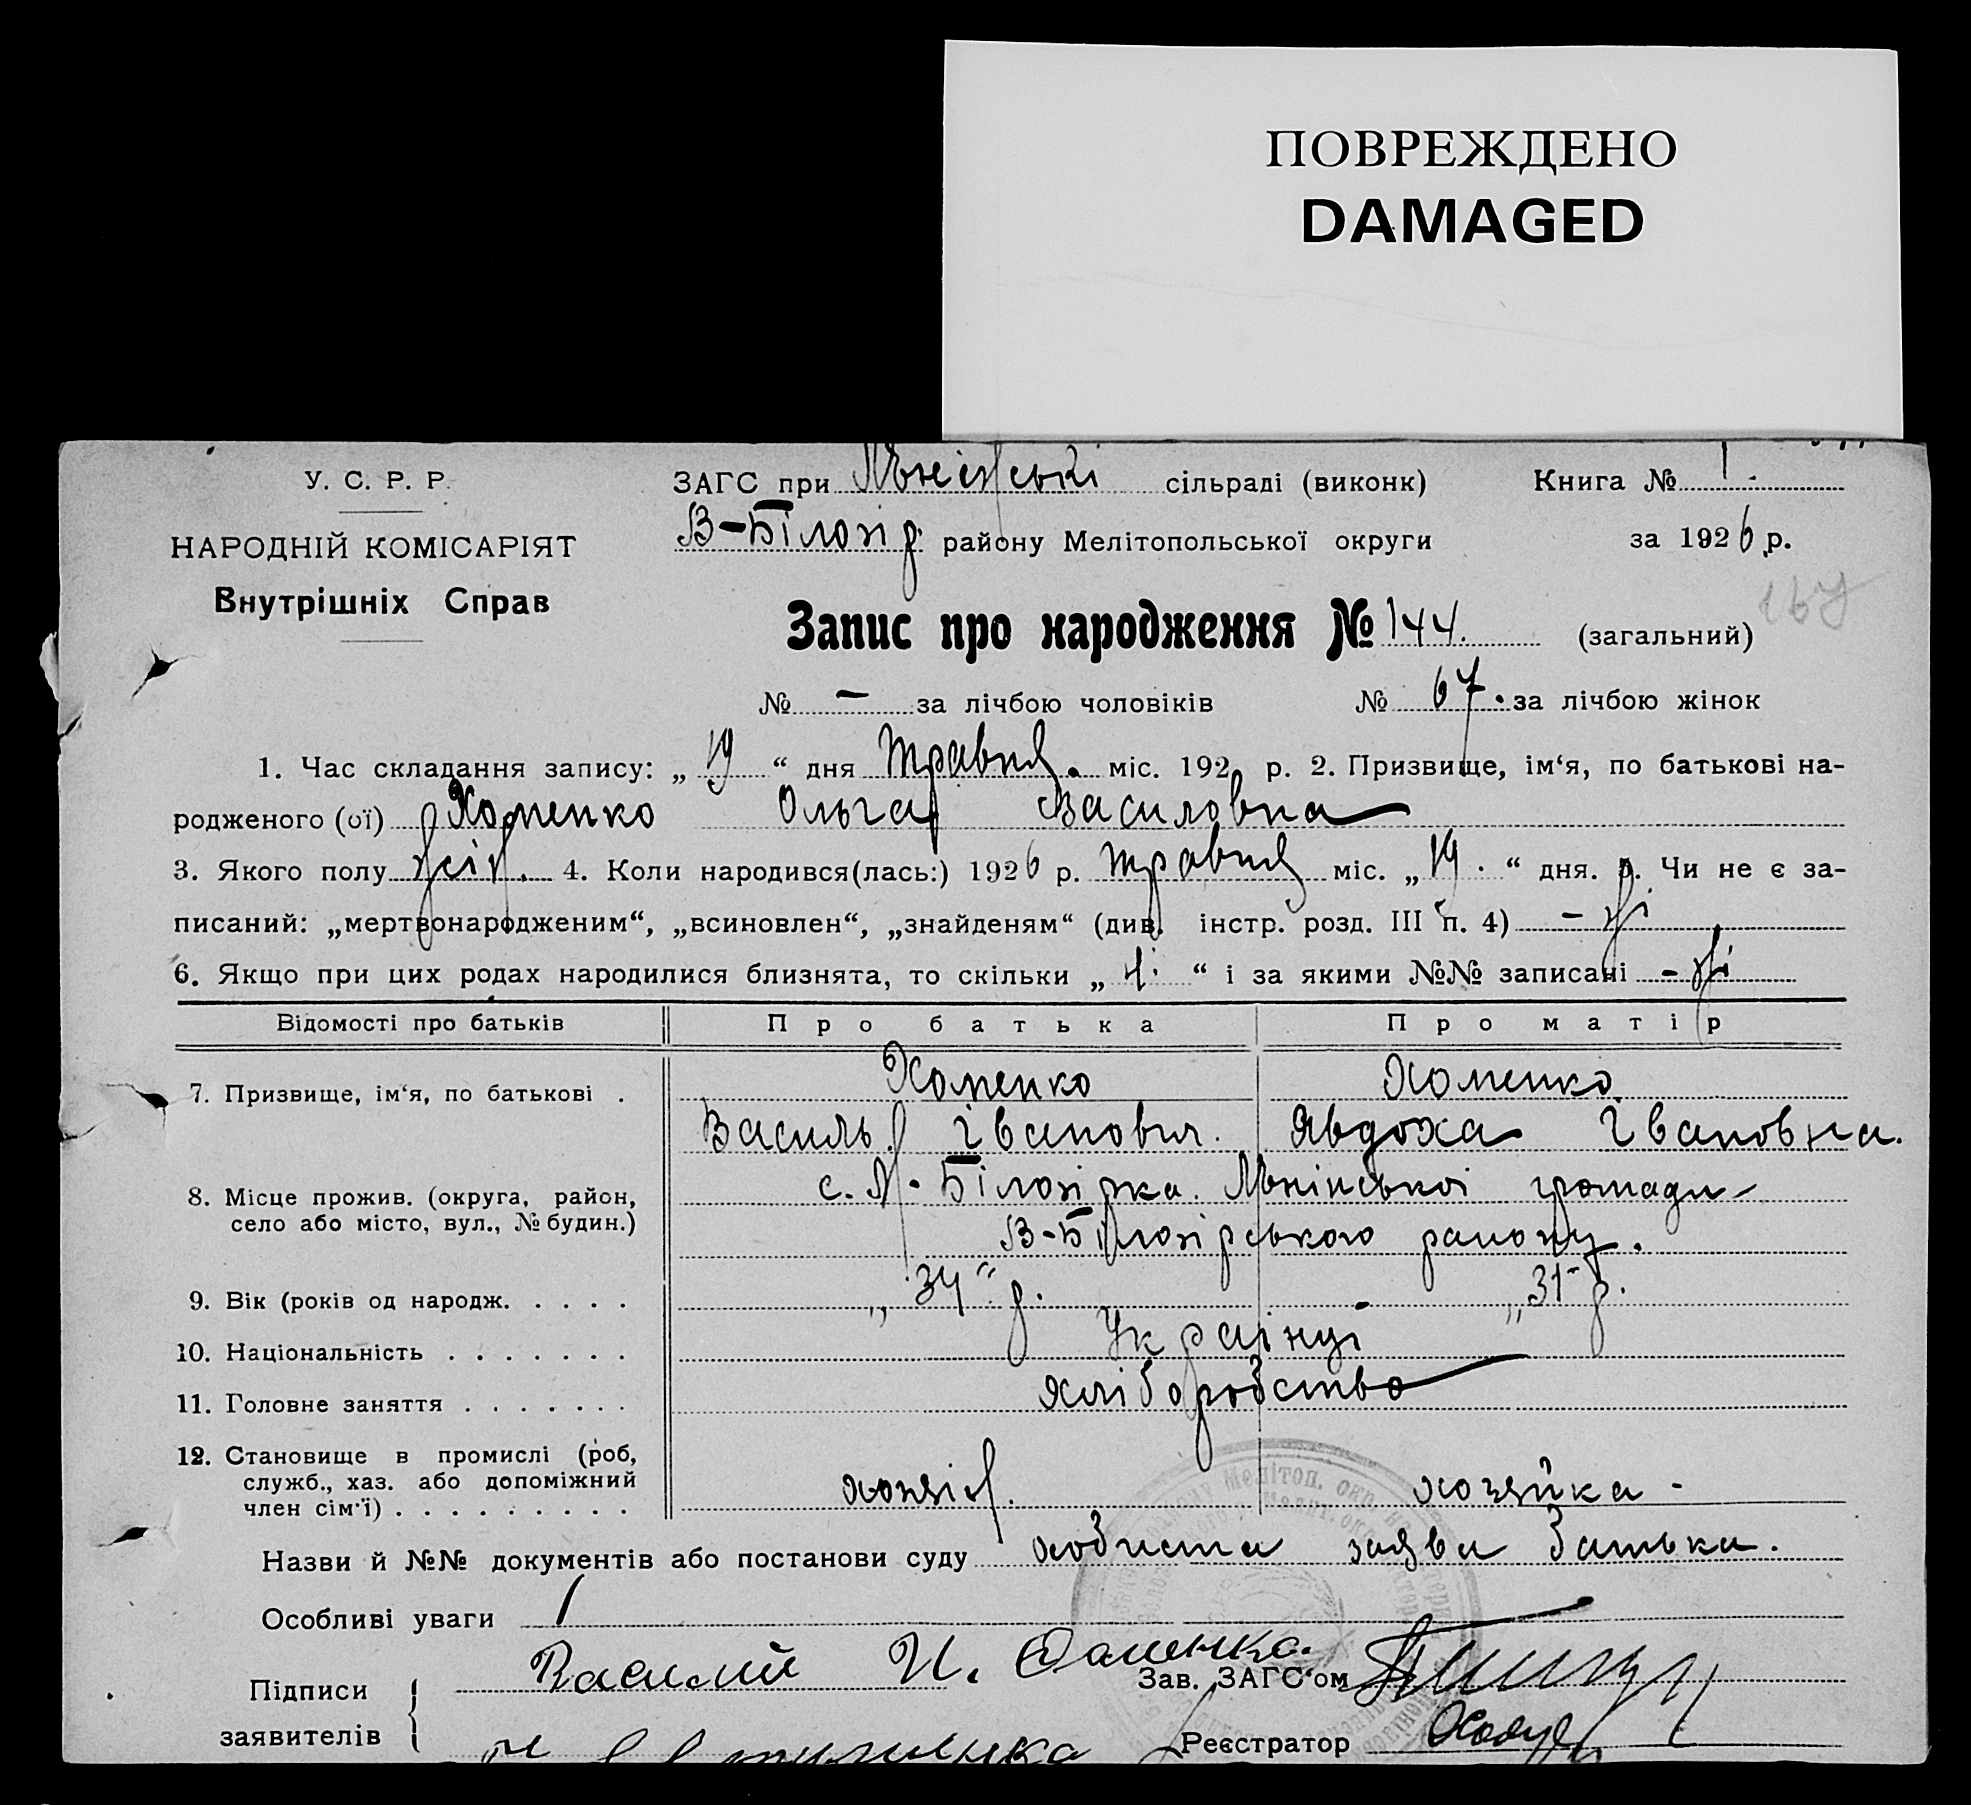 ПОВРЕЖДЕНО
DAMAGED
У. С. Р. Р.
НАРОДНІЙ КОМІСАРІЯТ
Внутрішніх Справ
ЗАГС при сільраді (виконк) Книга № 1.
В-Білозір. району Мелітопольської округи за 1926 р.
Запис про народження № 144. (загальний)
№ — за лічбою чоловіків № 67. за лічбою жінок
1. Час складання запису: „ 19 “ дня Травня. міс. 192 р. 2. Призвище, ім‘я, по батькові на-
родженого (ої) Хоменко Ольга Василовна
3. Якого полу жін. 4. Коли народився(лась:) 1926 р. травня міс. „ 19. “ дня. 5. Чи не є за-
писаний: „мертвонародженим“, „всиновлен“, „знайденям“ (див. інстр. розд. III п. 4) - ні
6. Якщо при цих родах народилися близнята, то скільки „ ні “ і за якими №№ записані - ні
Відомості про батьків Про батька Про матір
7. Призвище, ім‘я, по батькові . Хоменко Хоменко
Василь Івановіч. Явдоха Івановна.
8. Місце прожив. (округа, район, с. М-Білозірка. громади
село або місто, вул., № будин.) В-Білозірського району.
9. Вік (років од народж. . . . . „34“ р. „31“ р.
10. Національність . . . . . . . Українці
11. Головне заняття . . . . . . . хліборобство
12. Становище в промислі (роб,
служб., хаз. або допоміжний хозяін. хозяйка -
член сім‘ї) . . . . . . . . .
Назви й №№ документів або постанови суду особиста заява батька.
Особливі уваги
Підписи Василий И. Зав. ЗАГС‘ом
заявителів Реєстратор